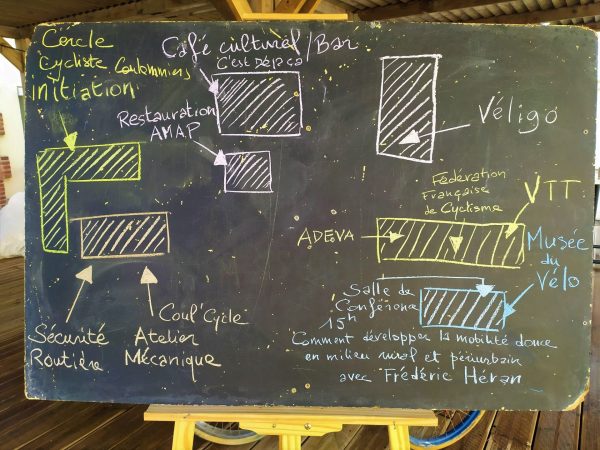 Cercle
Cycliste Coulommiers
initiation
Café culturel / Bar
C'est Déjà ça
Restauration
AMAP
Véligo
Fédération
Française
de Cyclisme
VTT
ADEVA
Musée
du
Vélo
Salle de
Conférence
15h
Comment développer la mobilité douce
en milieu rural et périurbain
avec Frédéric Héran
Coul'Cycle
Sécurité
Routière
Atelier
Mécanique